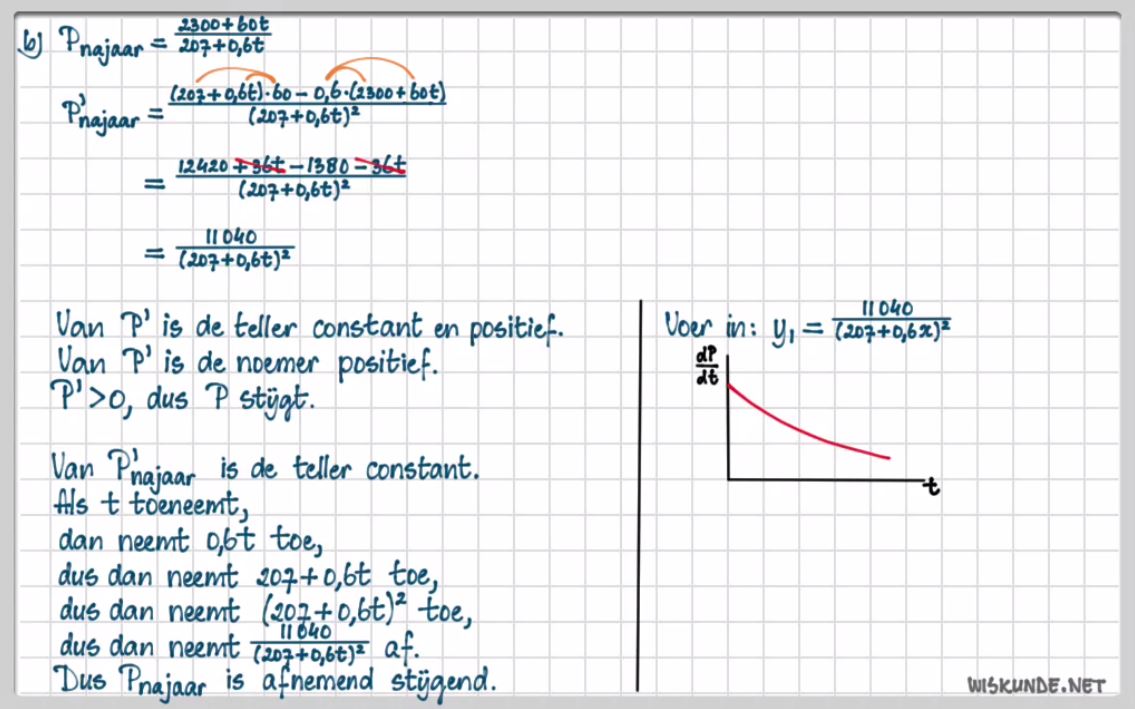 b) P_najaar = (2300+60t)/(207+0,6t)
P'_najaar = ((207+0,6t)·60 − 0,6·(2300+60t))/(207+0,6t)²
= (12420 +36t −1380 −36t)/(207+0,6t)²
= 11040/(207+0,6t)²
Van P' is de teller constant en positief.
Van P' is de noemer positief.
P'>0, dus P stijgt.
Van P'_najaar is de teller constant.
Als t toeneemt,
dan neemt 0,6t toe,
dus dan neemt 207+0,6t toe,
dus dan neemt (207+0,6t)² toe,
dus dan neemt 11040/(207+0,6t)² af.
Dus P_najaar is afnemend stijgend.
Voer in: y₁ = 11040/(207+0,6x)²
dP/dt
t
WISKUNDE.NET